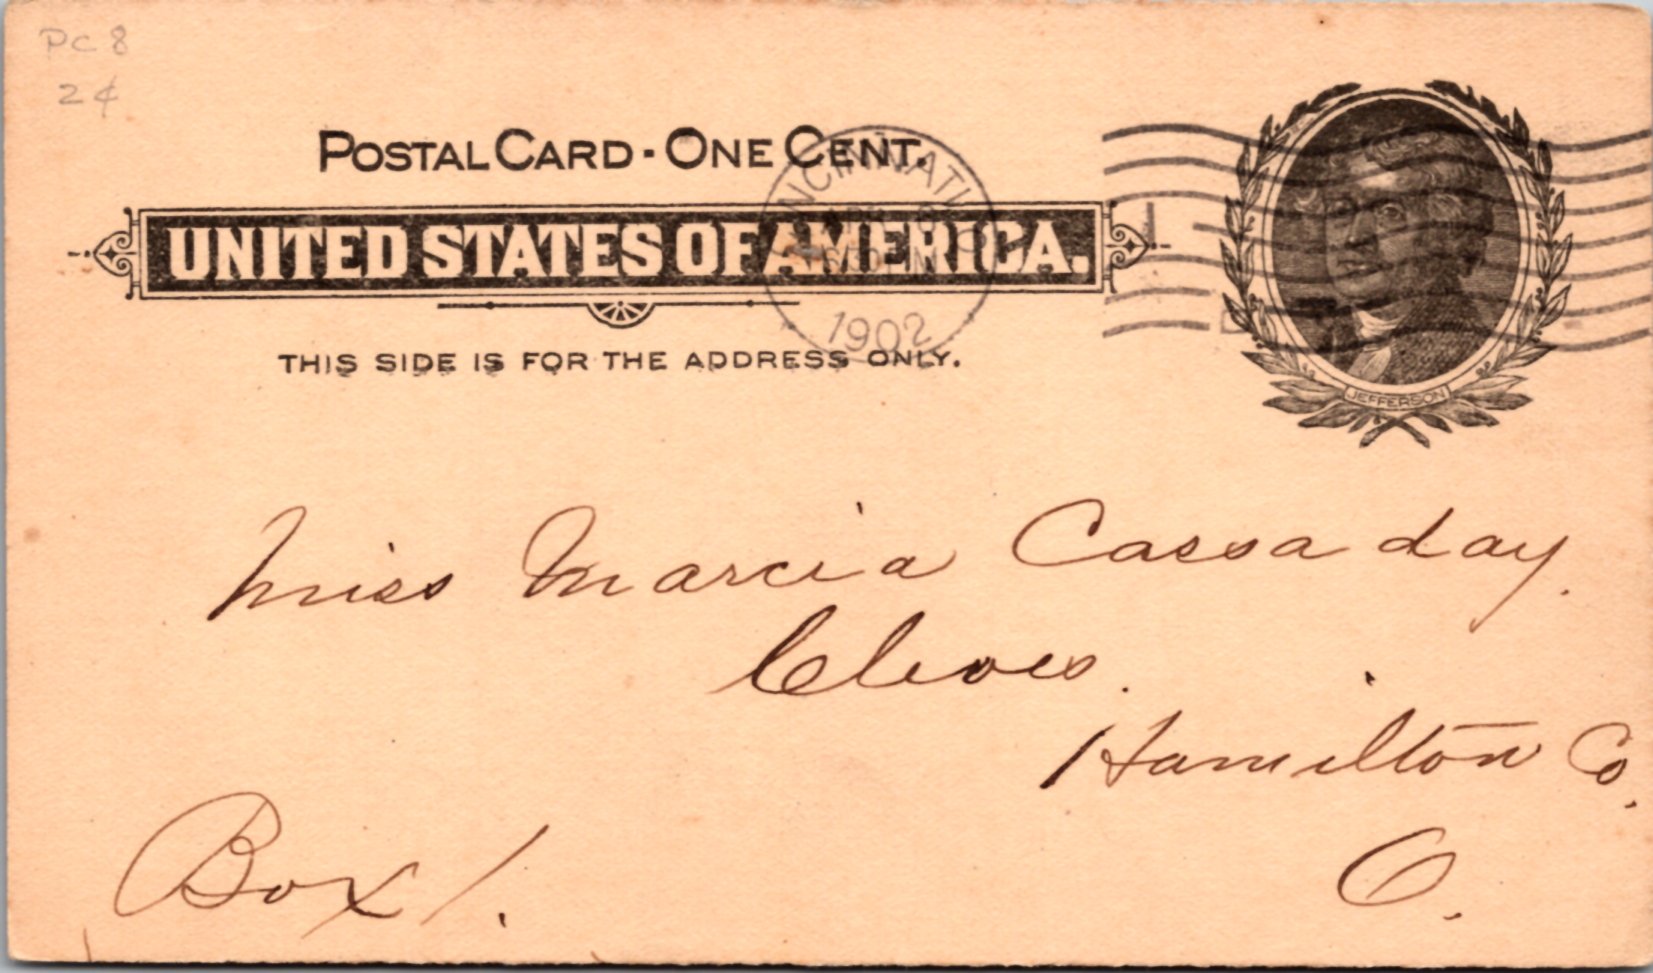 PC 8
2¢
POSTAL CARD - ONE CENT.
UNITED STATES OF AMERICA.
THIS SIDE IS FOR THE ADDRESS ONLY.
CINCINNATI, O.
1902
JEFFERSON
Miss Marcia Cassaday.
Cleves.
Hamilton Co.
O.
Box 1.